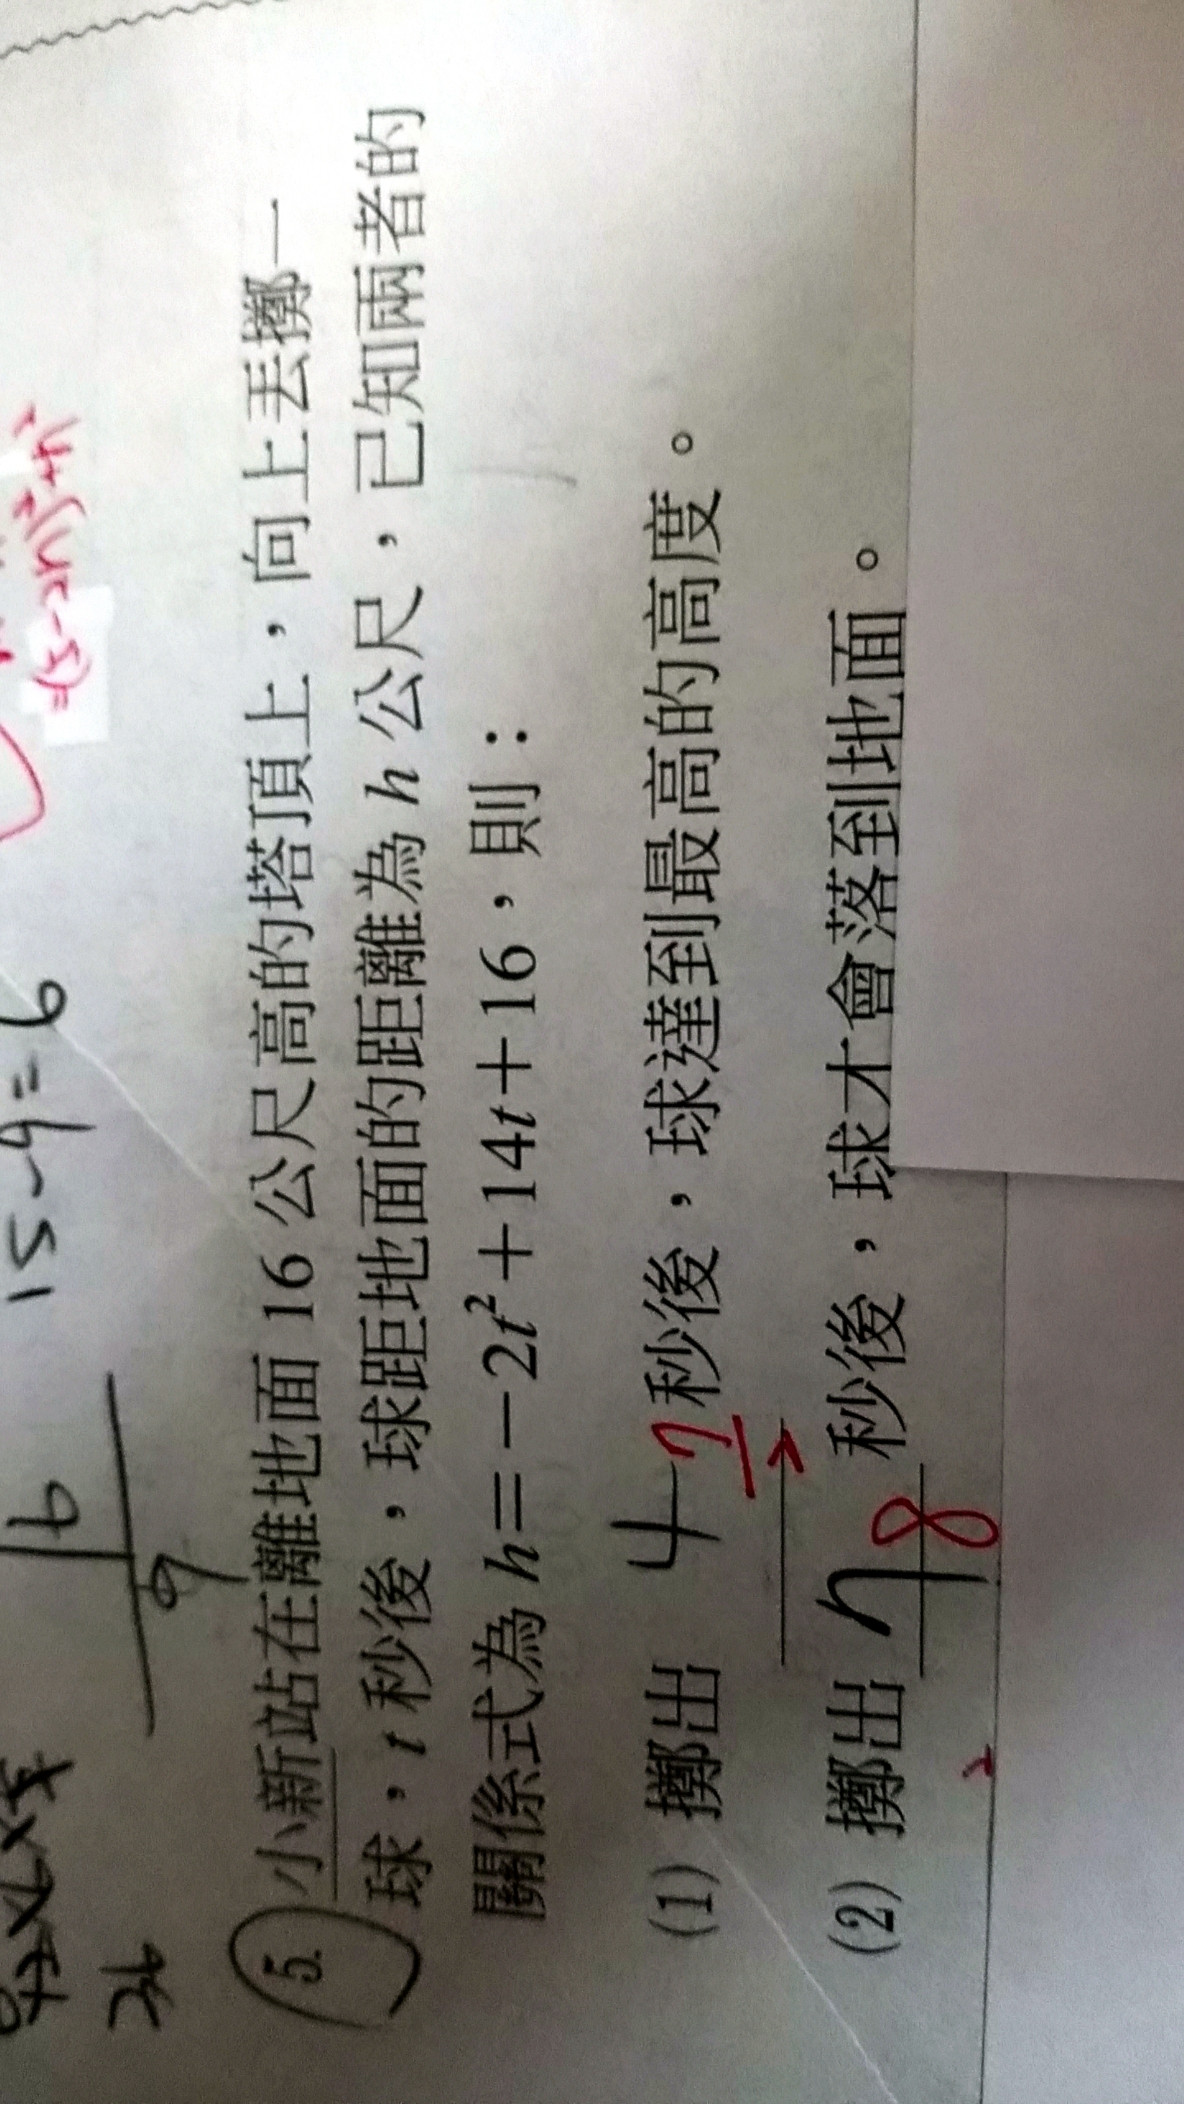 15-9=6
6
9
=(5-2√1)²+4²
5. 小新站在離地面 16 公尺高的塔頂上，向上丟擲一
球，t 秒後，球距地面的距離為 h 公尺，已知兩者的
關係式為 h=-2t²+14t+16，則：
(1) 擲出 4 7/2 秒後，球達到最高的高度。
(2) 擲出 7 8 秒後，球才會落到地面。